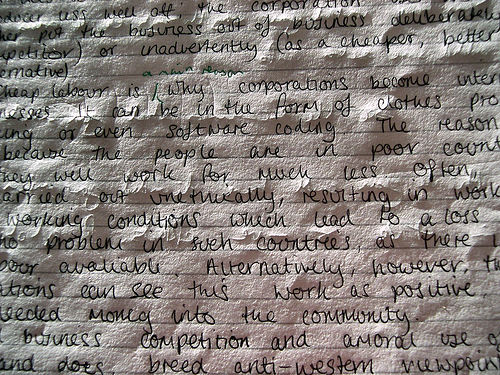 less well off, the corporation
put the business out of business deliberately
petitor) or inadvertently (as a cheaper, better
ernative)
a main reason
heap labour is why corporations become inter
nesses. It can be in the form of clothes pro
ing or even software coding. The reason
because the people are in poor count
hey will work for much less. Often,
arried out unethically, resulting in work
working conditions which lead to a loss
no problem in such countries, as there i
oor available. Alternatively, however, t
ations can see this work as positive
eeded money into the community.
business competition and amoral use o
and does breed anti-western viewpoin